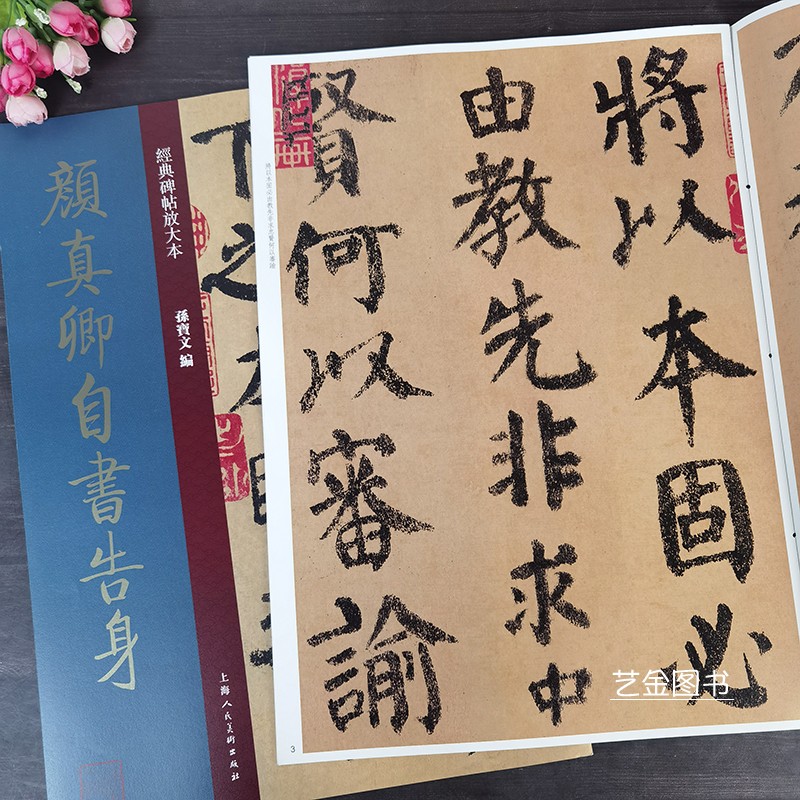 顏真卿自書告身
經典碑帖放大本
孫寶文 編
上海人民美術出版社
將以本固必
由教先非求中
賢何以審諭
3
艺金图书